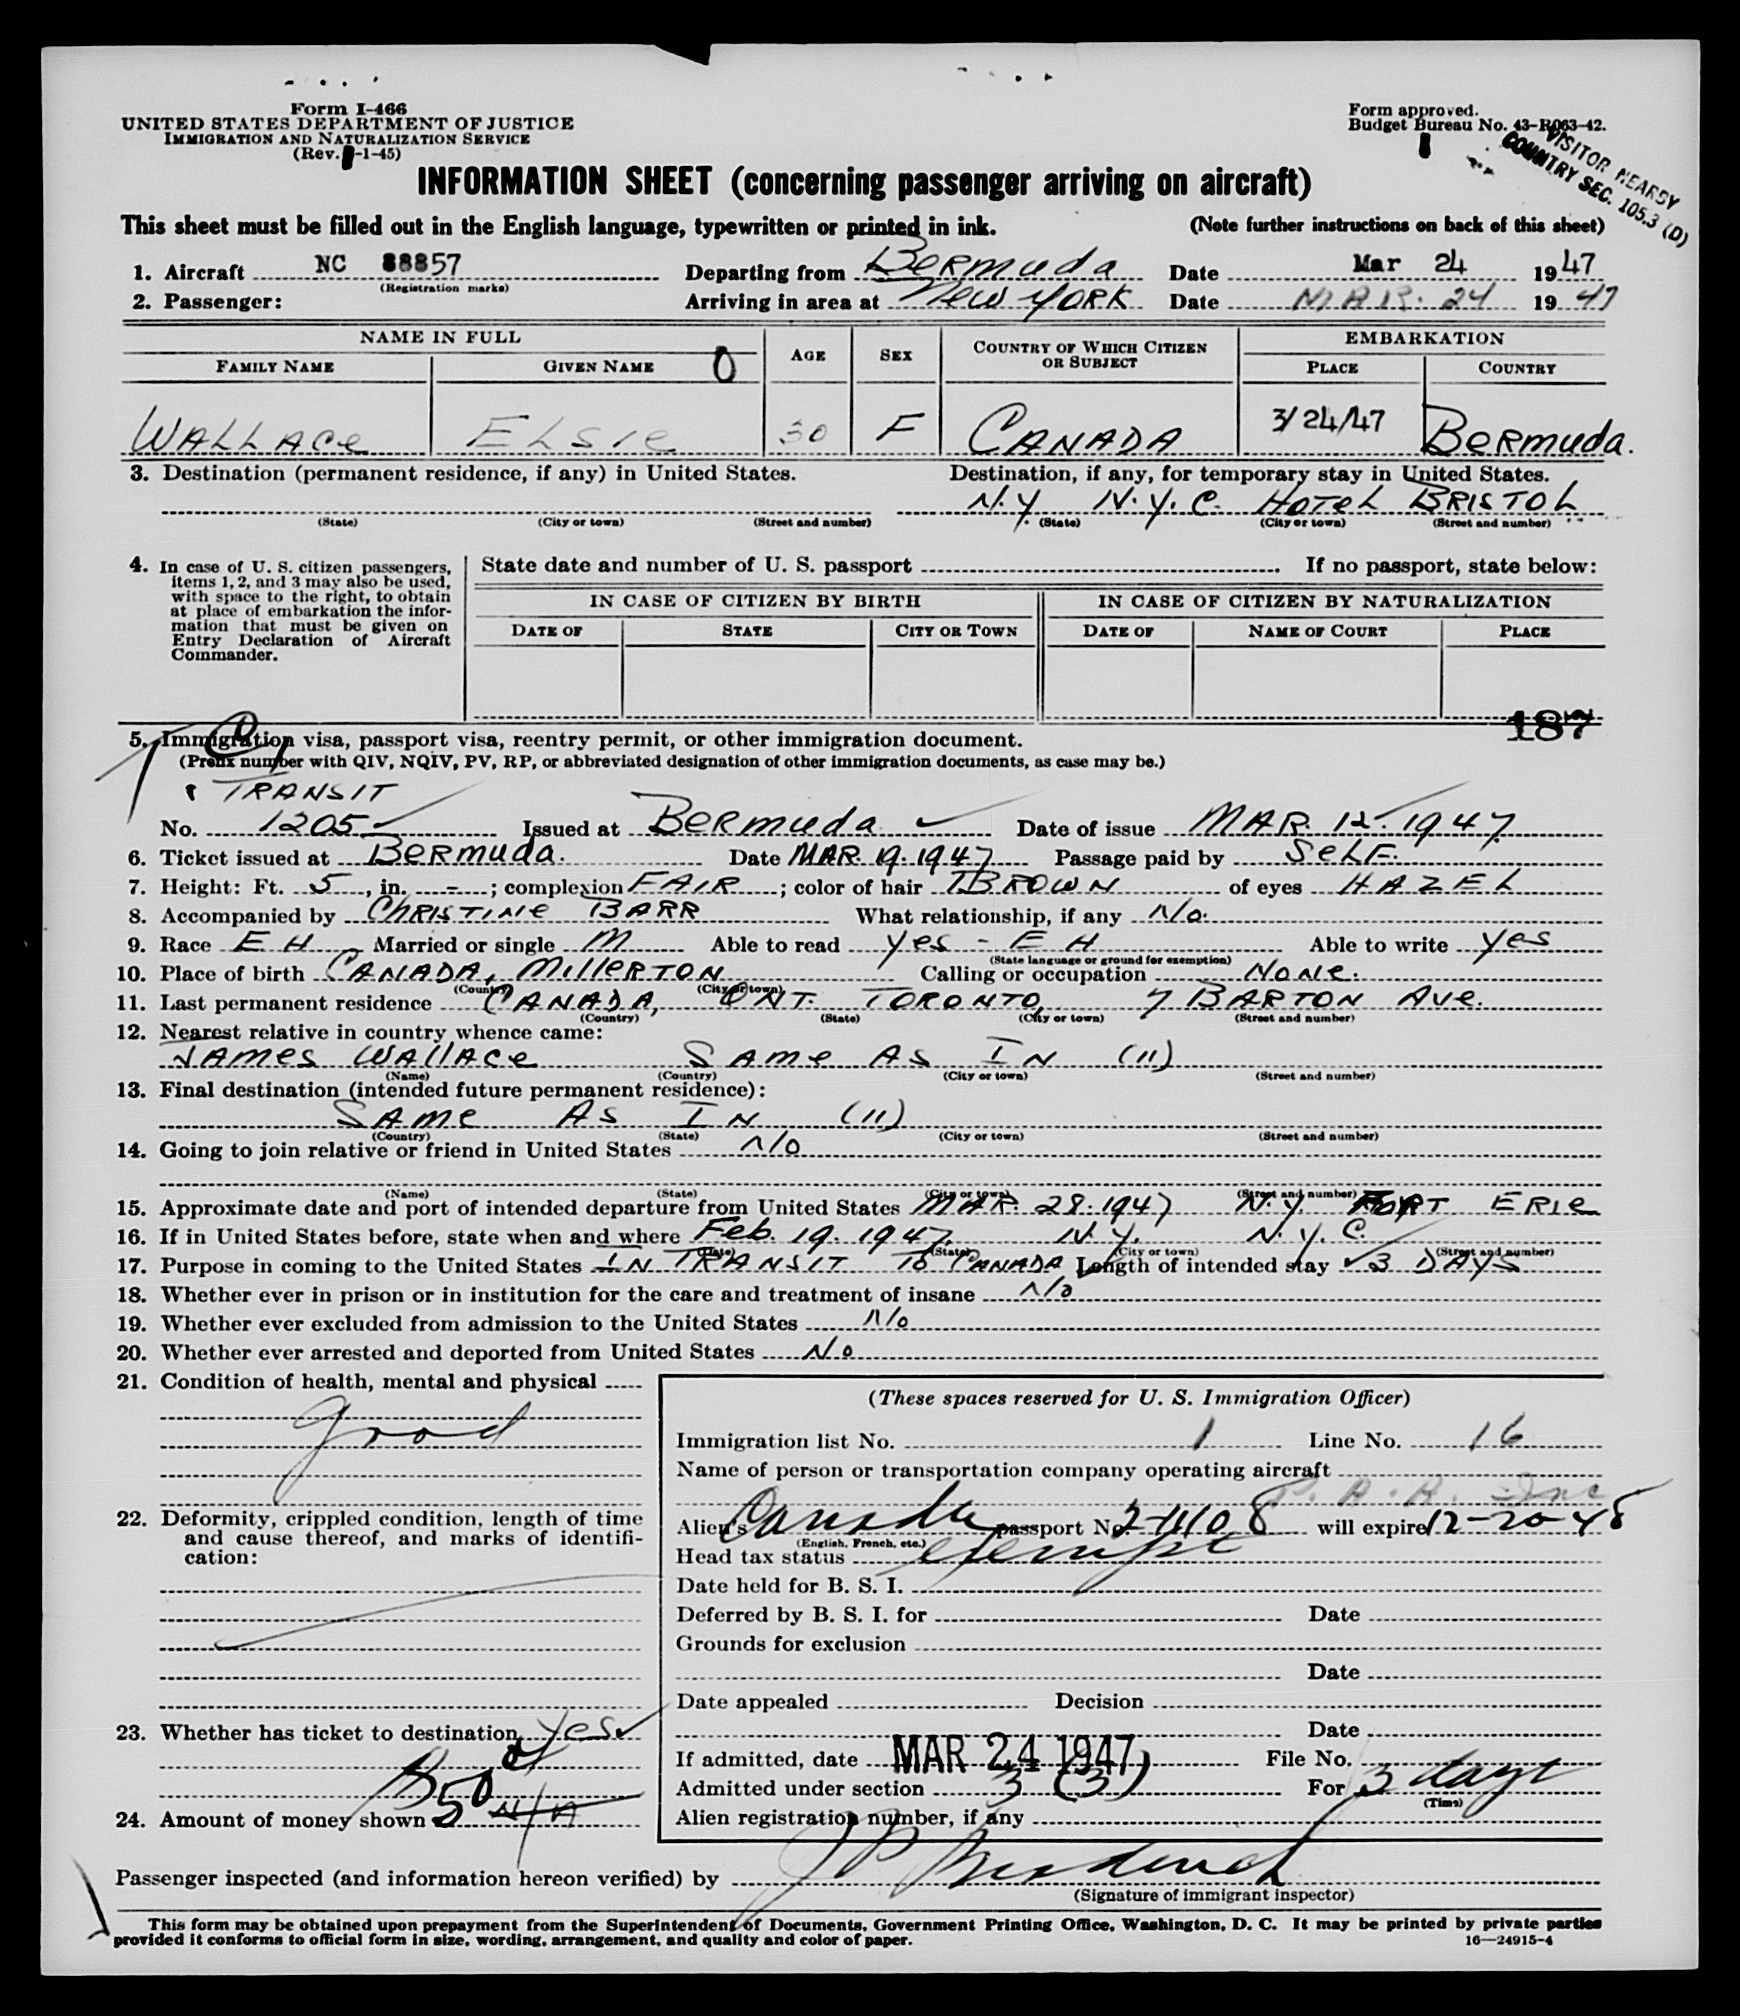 Form I-466
UNITED STATES DEPARTMENT OF JUSTICE
IMMIGRATION AND NATURALIZATION SERVICE
(Rev. -1-45)
Form approved.
Budget Bureau No. 43-R063-42.
VISITOR NEARBY
COUNTRY SEC. 105.3 (D)
INFORMATION SHEET (concerning passenger arriving on aircraft)
This sheet must be filled out in the English language, typewritten or printed in ink. (Note further instructions on back of this sheet)
1. Aircraft NC 88857 Departing from Bermuda Date Mar 24 1947
(Registration marks)
2. Passenger: Arriving in area at New York Date MAR. 24 1947
NAME IN FULL AGE SEX COUNTRY OF WHICH CITIZEN OR SUBJECT EMBARKATION
FAMILY NAME GIVEN NAME 0 PLACE COUNTRY
WALLACE ELSIE 30 F CANADA 3/24/47 Bermuda.
3. Destination (permanent residence, if any) in United States. Destination, if any, for temporary stay in United States.
N.Y. N.Y.C. HOTEL BRISTOL
(State) (City or town) (Street and number) (State) (City or town) (Street and number)
4. In case of U. S. citizen passengers, items 1, 2, and 3 may also be used, with space to the right, to obtain at place of embarkation the information that must be given on Entry Declaration of Aircraft Commander.
State date and number of U. S. passport . If no passport, state below:
IN CASE OF CITIZEN BY BIRTH IN CASE OF CITIZEN BY NATURALIZATION
DATE OF STATE CITY OR TOWN DATE OF NAME OF COURT PLACE
187
5. Immigration visa, passport visa, reentry permit, or other immigration document.
(Prefix number with QIV, NQIV, PV, RP, or abbreviated designation of other immigration documents, as case may be.)
TRANSIT
No. 1205 Issued at Bermuda Date of issue MAR. 12. 1947.
6. Ticket issued at Bermuda. Date MAR. 19. 1947 Passage paid by SELF.
7. Height: Ft. 5, in. -; complexion FAIR; color of hair BROWN of eyes HAZEL
8. Accompanied by CHRISTINE BARR What relationship, if any No.
9. Race EH Married or single M Able to read yes - EH Able to write yes
(State language or ground for exemption)
10. Place of birth CANADA, MILLERTON Calling or occupation NONE.
(Country) (City or town)
11. Last permanent residence CANADA, ONT. TORONTO, 7 BARTON AVE.
(Country) (State) (City or town) (Street and number)
12. Nearest relative in country whence came:
JAMES WALLACE SAME AS IN (11)
(Name) (Country) (City or town) (Street and number)
13. Final destination (intended future permanent residence):
SAME AS IN (11)
(Country) (State) (City or town) (Street and number)
14. Going to join relative or friend in United States No
(Name) (State) (City or town) (Street and number)
15. Approximate date and port of intended departure from United States MAR. 28. 1947 N.Y. FORT ERIE
16. If in United States before, state when and where Feb. 19. 1947. N.Y. N.Y.C.
(Date) (State) (City or town) (Street and number)
17. Purpose in coming to the United States IN TRANSIT TO CANADA Length of intended stay 3 DAYS
18. Whether ever in prison or in institution for the care and treatment of insane No
19. Whether ever excluded from admission to the United States No
20. Whether ever arrested and deported from United States No
21. Condition of health, mental and physical
good
22. Deformity, crippled condition, length of time and cause thereof, and marks of identification:
23. Whether has ticket to destination yes
24. Amount of money shown $50
(These spaces reserved for U. S. Immigration Officer)
Immigration list No. 1 Line No. 16
Name of person or transportation company operating aircraft
P. A. A. Inc
Alien's Canada passport No. 2-11108 will expire 12-20-48
(English, French, etc.)
Head tax status exempt
Date held for B. S. I.
Deferred by B. S. I. for Date
Grounds for exclusion
Date
Date appealed Decision
Date
If admitted, date MAR 24 1947 File No.
Admitted under section 3 (3) For 3 days
(Time)
Alien registration number, if any
Passenger inspected (and information hereon verified) by
(Signature of immigrant inspector)
This form may be obtained upon prepayment from the Superintendent of Documents, Government Printing Office, Washington, D. C. It may be printed by private parties
provided it conforms to official form in size, wording, arrangement, and quality and color of paper. 16—24915-4